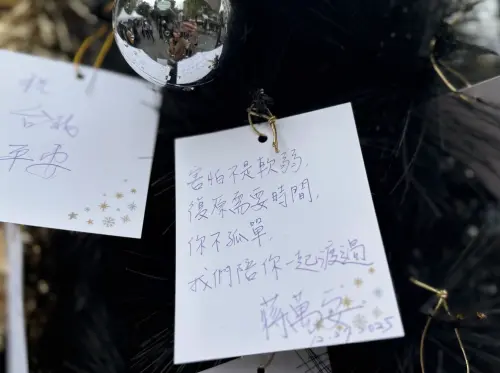 祝
台北
平安
害怕不是軟弱,
復原需要時間,
你不孤單,
我們陪你一起渡過
蔣萬安
12.29 2025